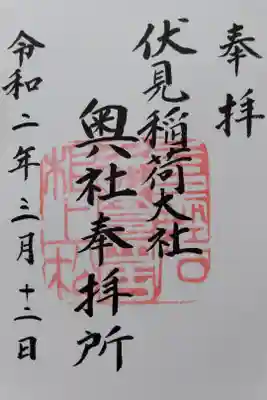 奉拝
伏見稲荷大社
奥社奉拝所
令和二年三月十二日